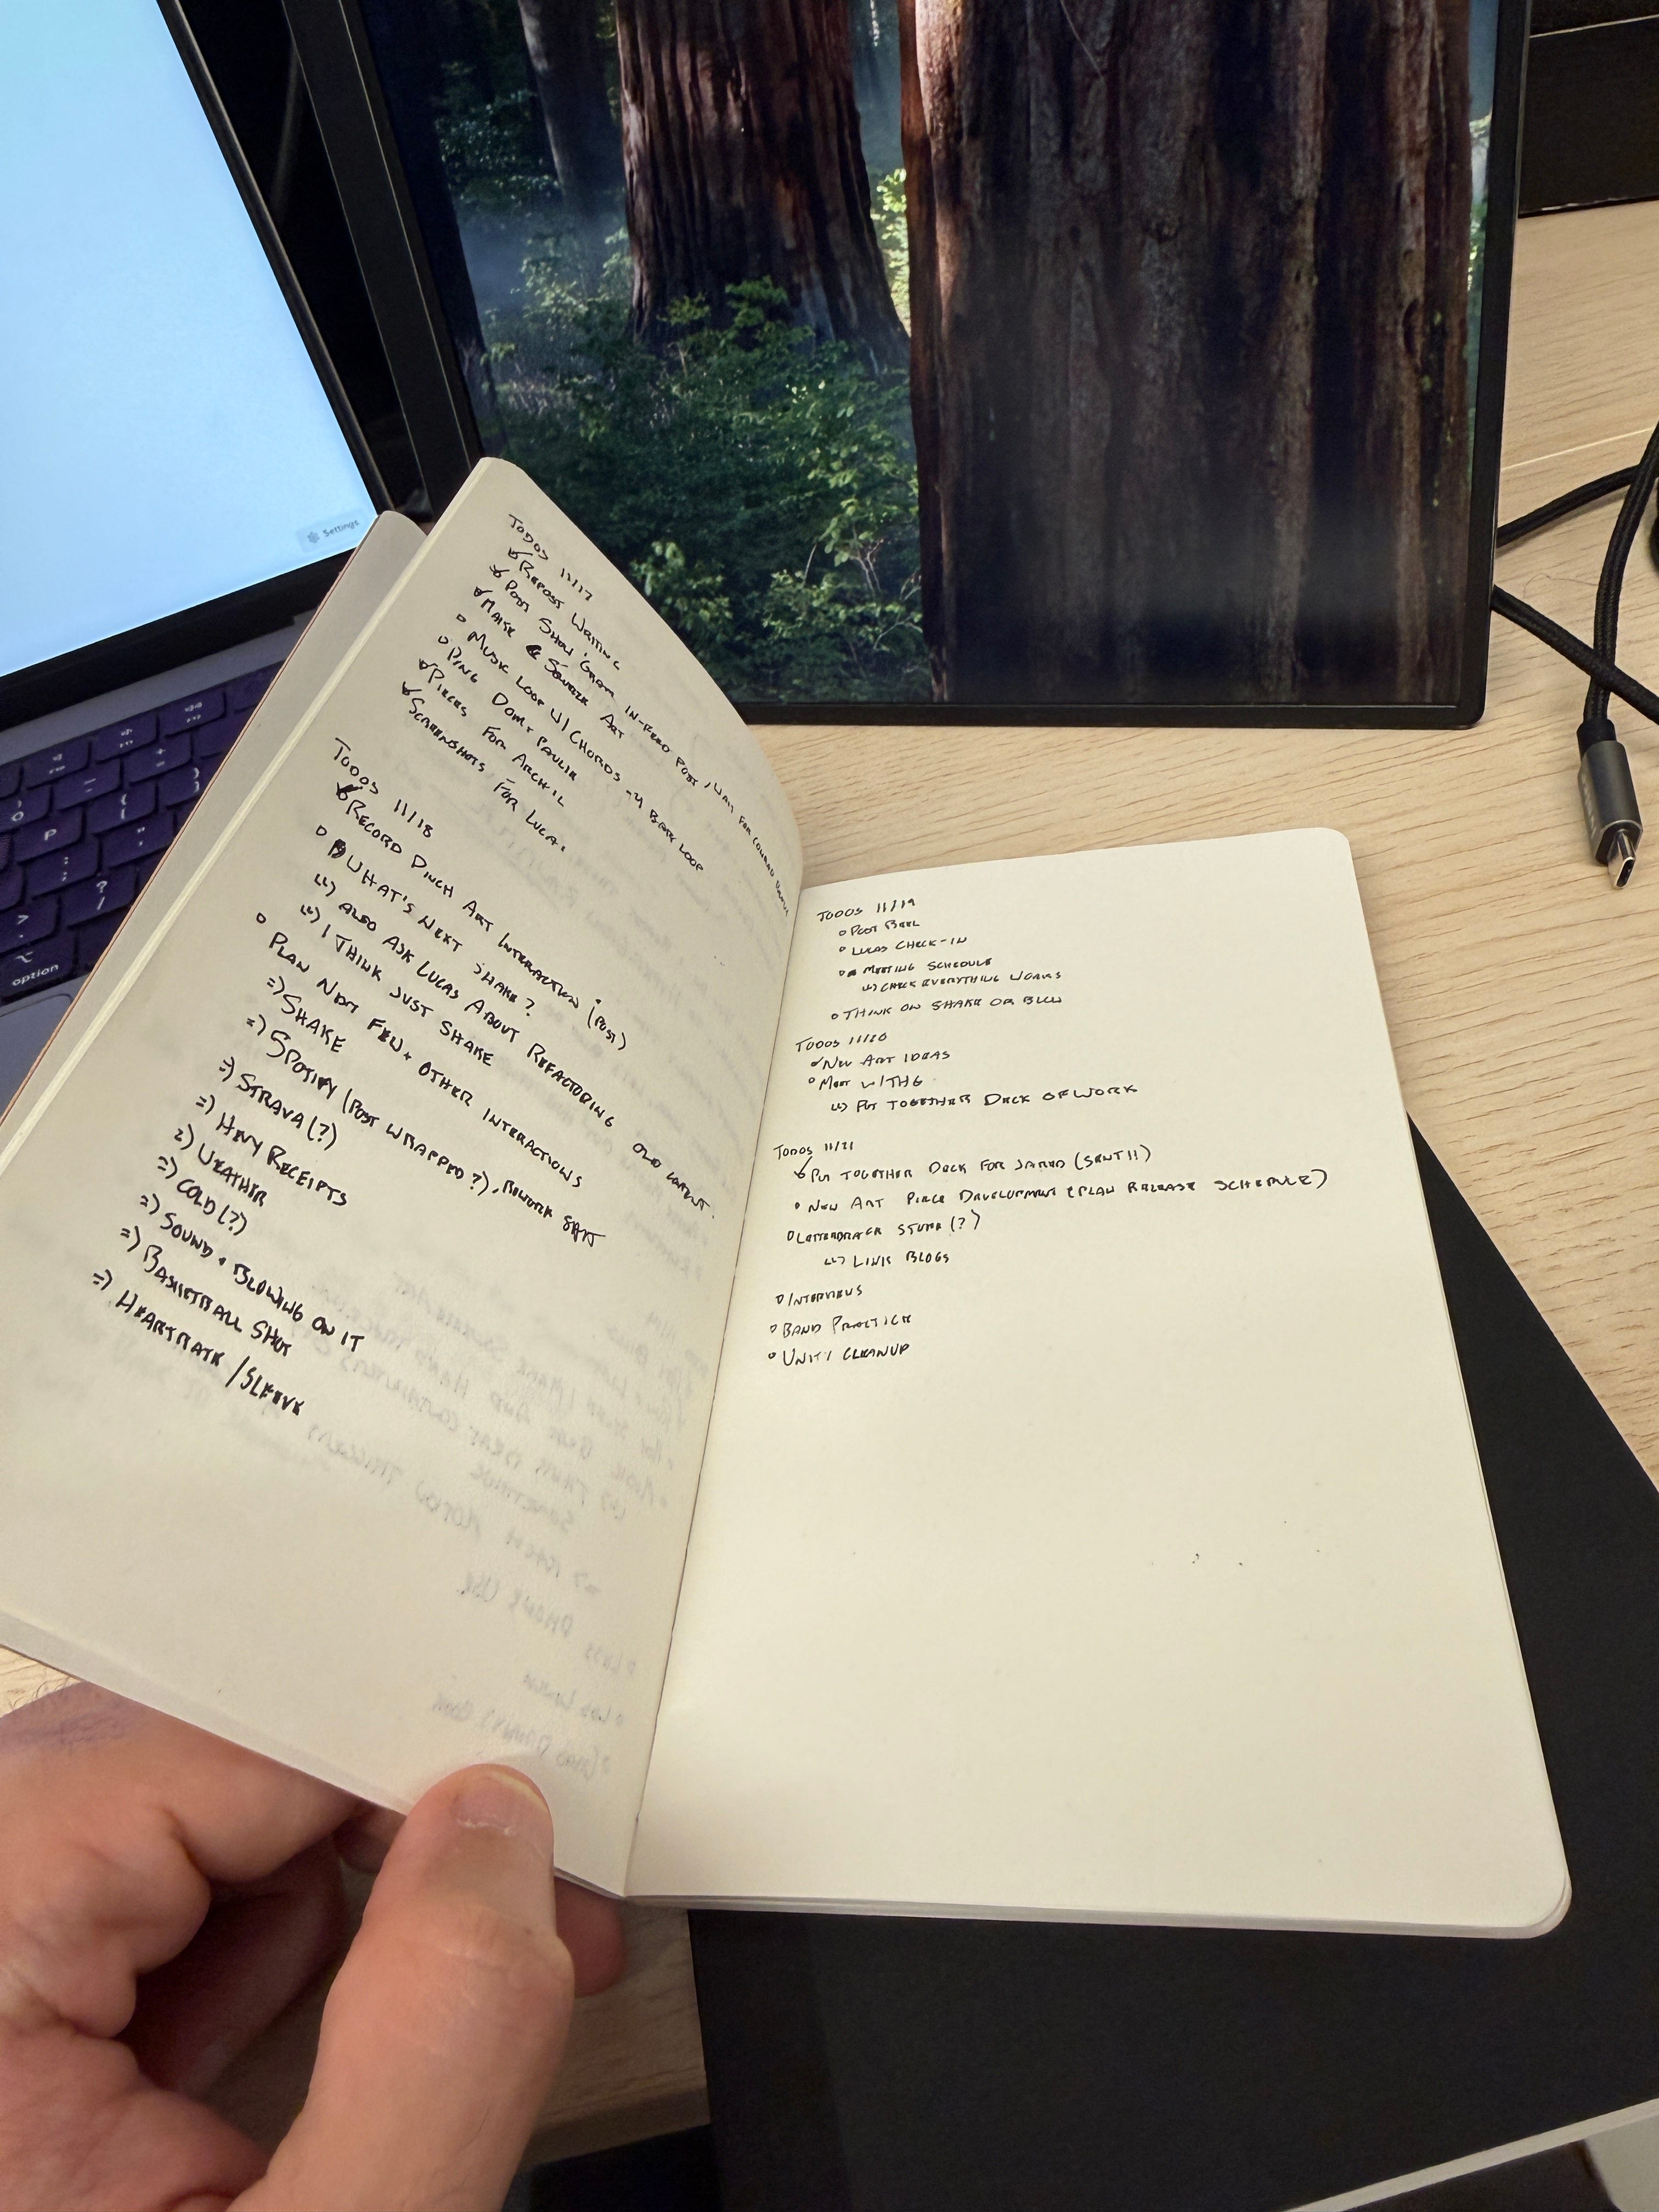 TODOS 11/17
REPOST WAITING
POST SHOW GRAM IN-FEED POST, WAIT FOR
MAKE SQUARE ART
MUSIC LOOP W/ CHORDS BACK LOOP
PING DOM + PAULIE
PIECES FOR ARCHIL
SCREENSHOTS FOR LUCAS
TODOS 11/18
RECORD PINCH ART INTERACTION (POST)
WHAT'S NEXT SHAKE?
ALSO ASK LUCAS ABOUT REFACTORING OLD CONTENT.
I THINK JUST SHAKE
PLAN NEXT FEW + OTHER INTERACTIONS
=> SHAKE
=> SPOTIFY (POST WRAPPED?), REWORK
=> STRAVA (?)
=> HEVY RECEIPTS
=> WEATHER
=> COLD (?)
=> SOUND + BLOWING ON IT
=> BASKETBALL SHOT
=> HEARTRATE / SLEEVE
TODOS 11/19
POST REEL
LUCAS CHECK-IN
MEETING SCHEDULE
CHECK EVERYTHING WORKS
THINK ON SHAKE OR BLOW
TODOS 11/20
NEW ART IDEAS
MEET W/ THG
PUT TOGETHER DECK OF WORK
TODOS 11/21
PUT TOGETHER DECK FOR JARED (SENT!!)
NEW ART PIECE DEVELOPMENT (PLAN RELEASE SCHEDULE)
LETTERBRACK STUFF (?)
LINK BLOGS
INTERVIEWS
BAND PRACTICE
UNITY CLEANUP
Settings
P
option